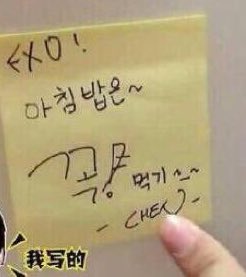 EXO!
아침밥은~
꼭! 먹기~~
- CHEN -
我写的